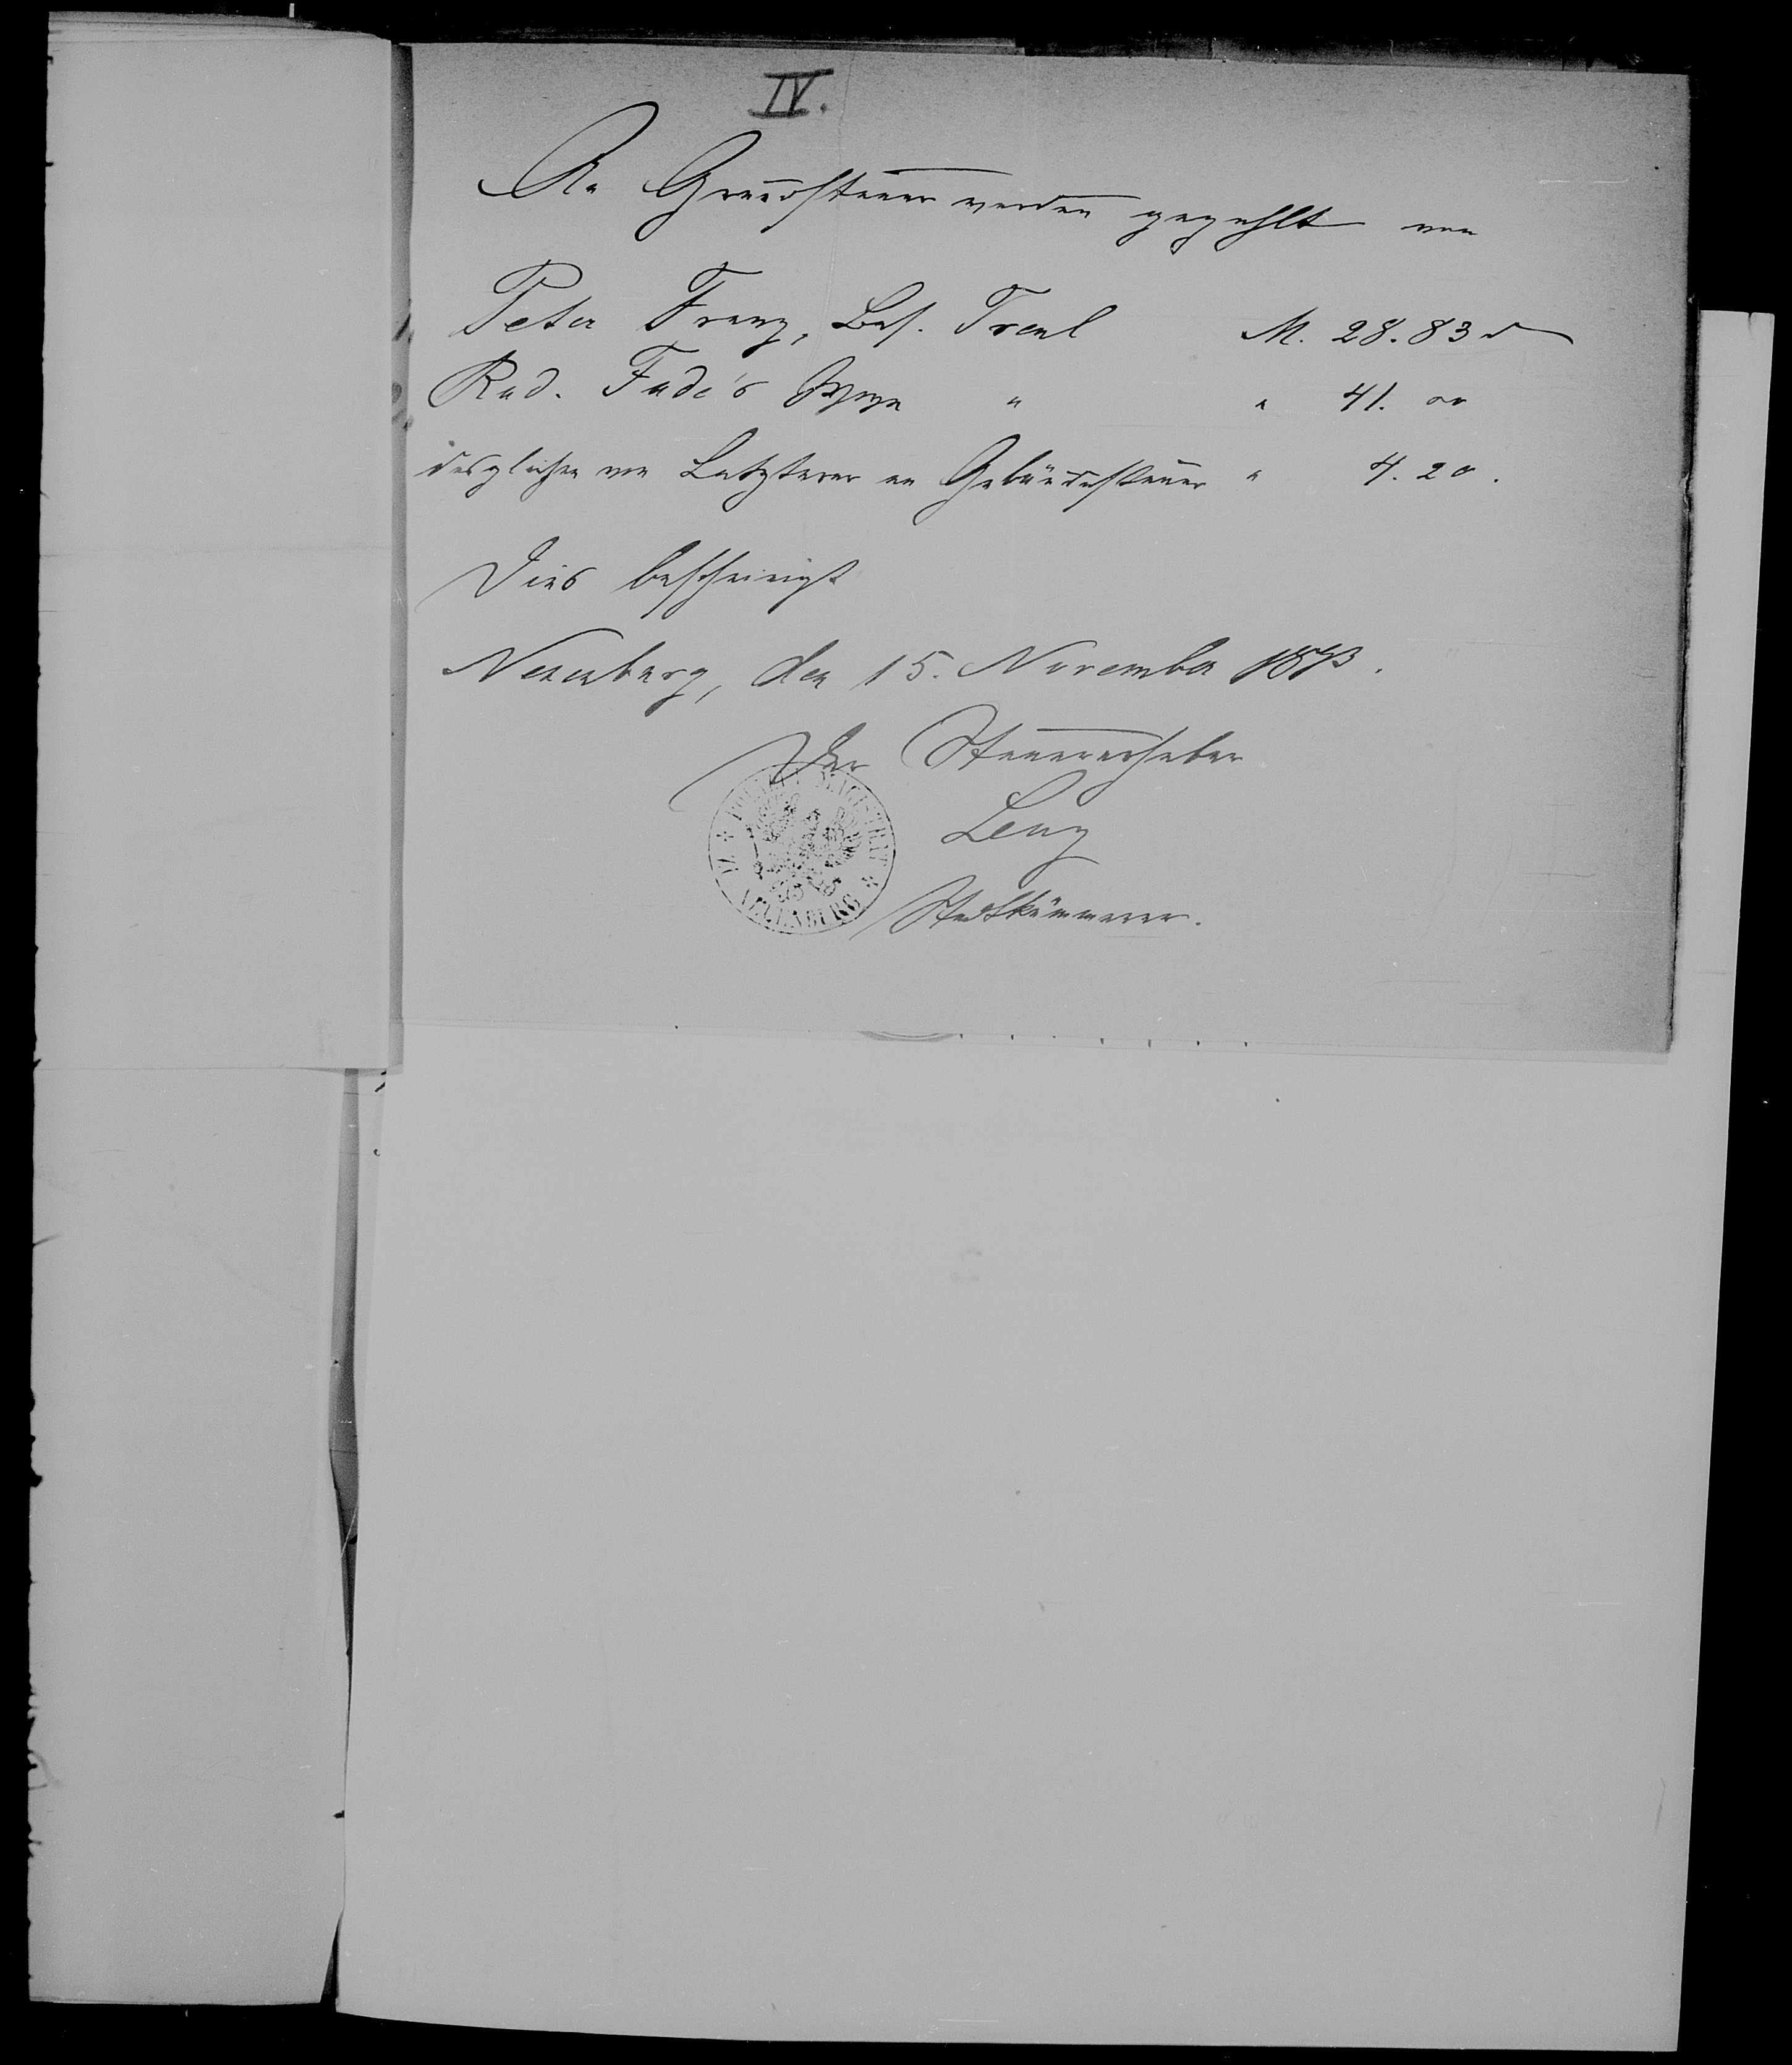 IV.
An Grundsteuer werden gezahlt von
Peter Franz, Bes. Treul M. 28.83 d
Rud. Fade's " " 41. 00
desgleichen von Letzterer an Gebäudesteuer " 4. 20.
Dies bescheinigt
Neuenburg, den 15. November 1893.
Der Steuererheber
Lenz
Stadtkämmerer.
POLIZEI MAGISTRAT
ZU NEUENBURG